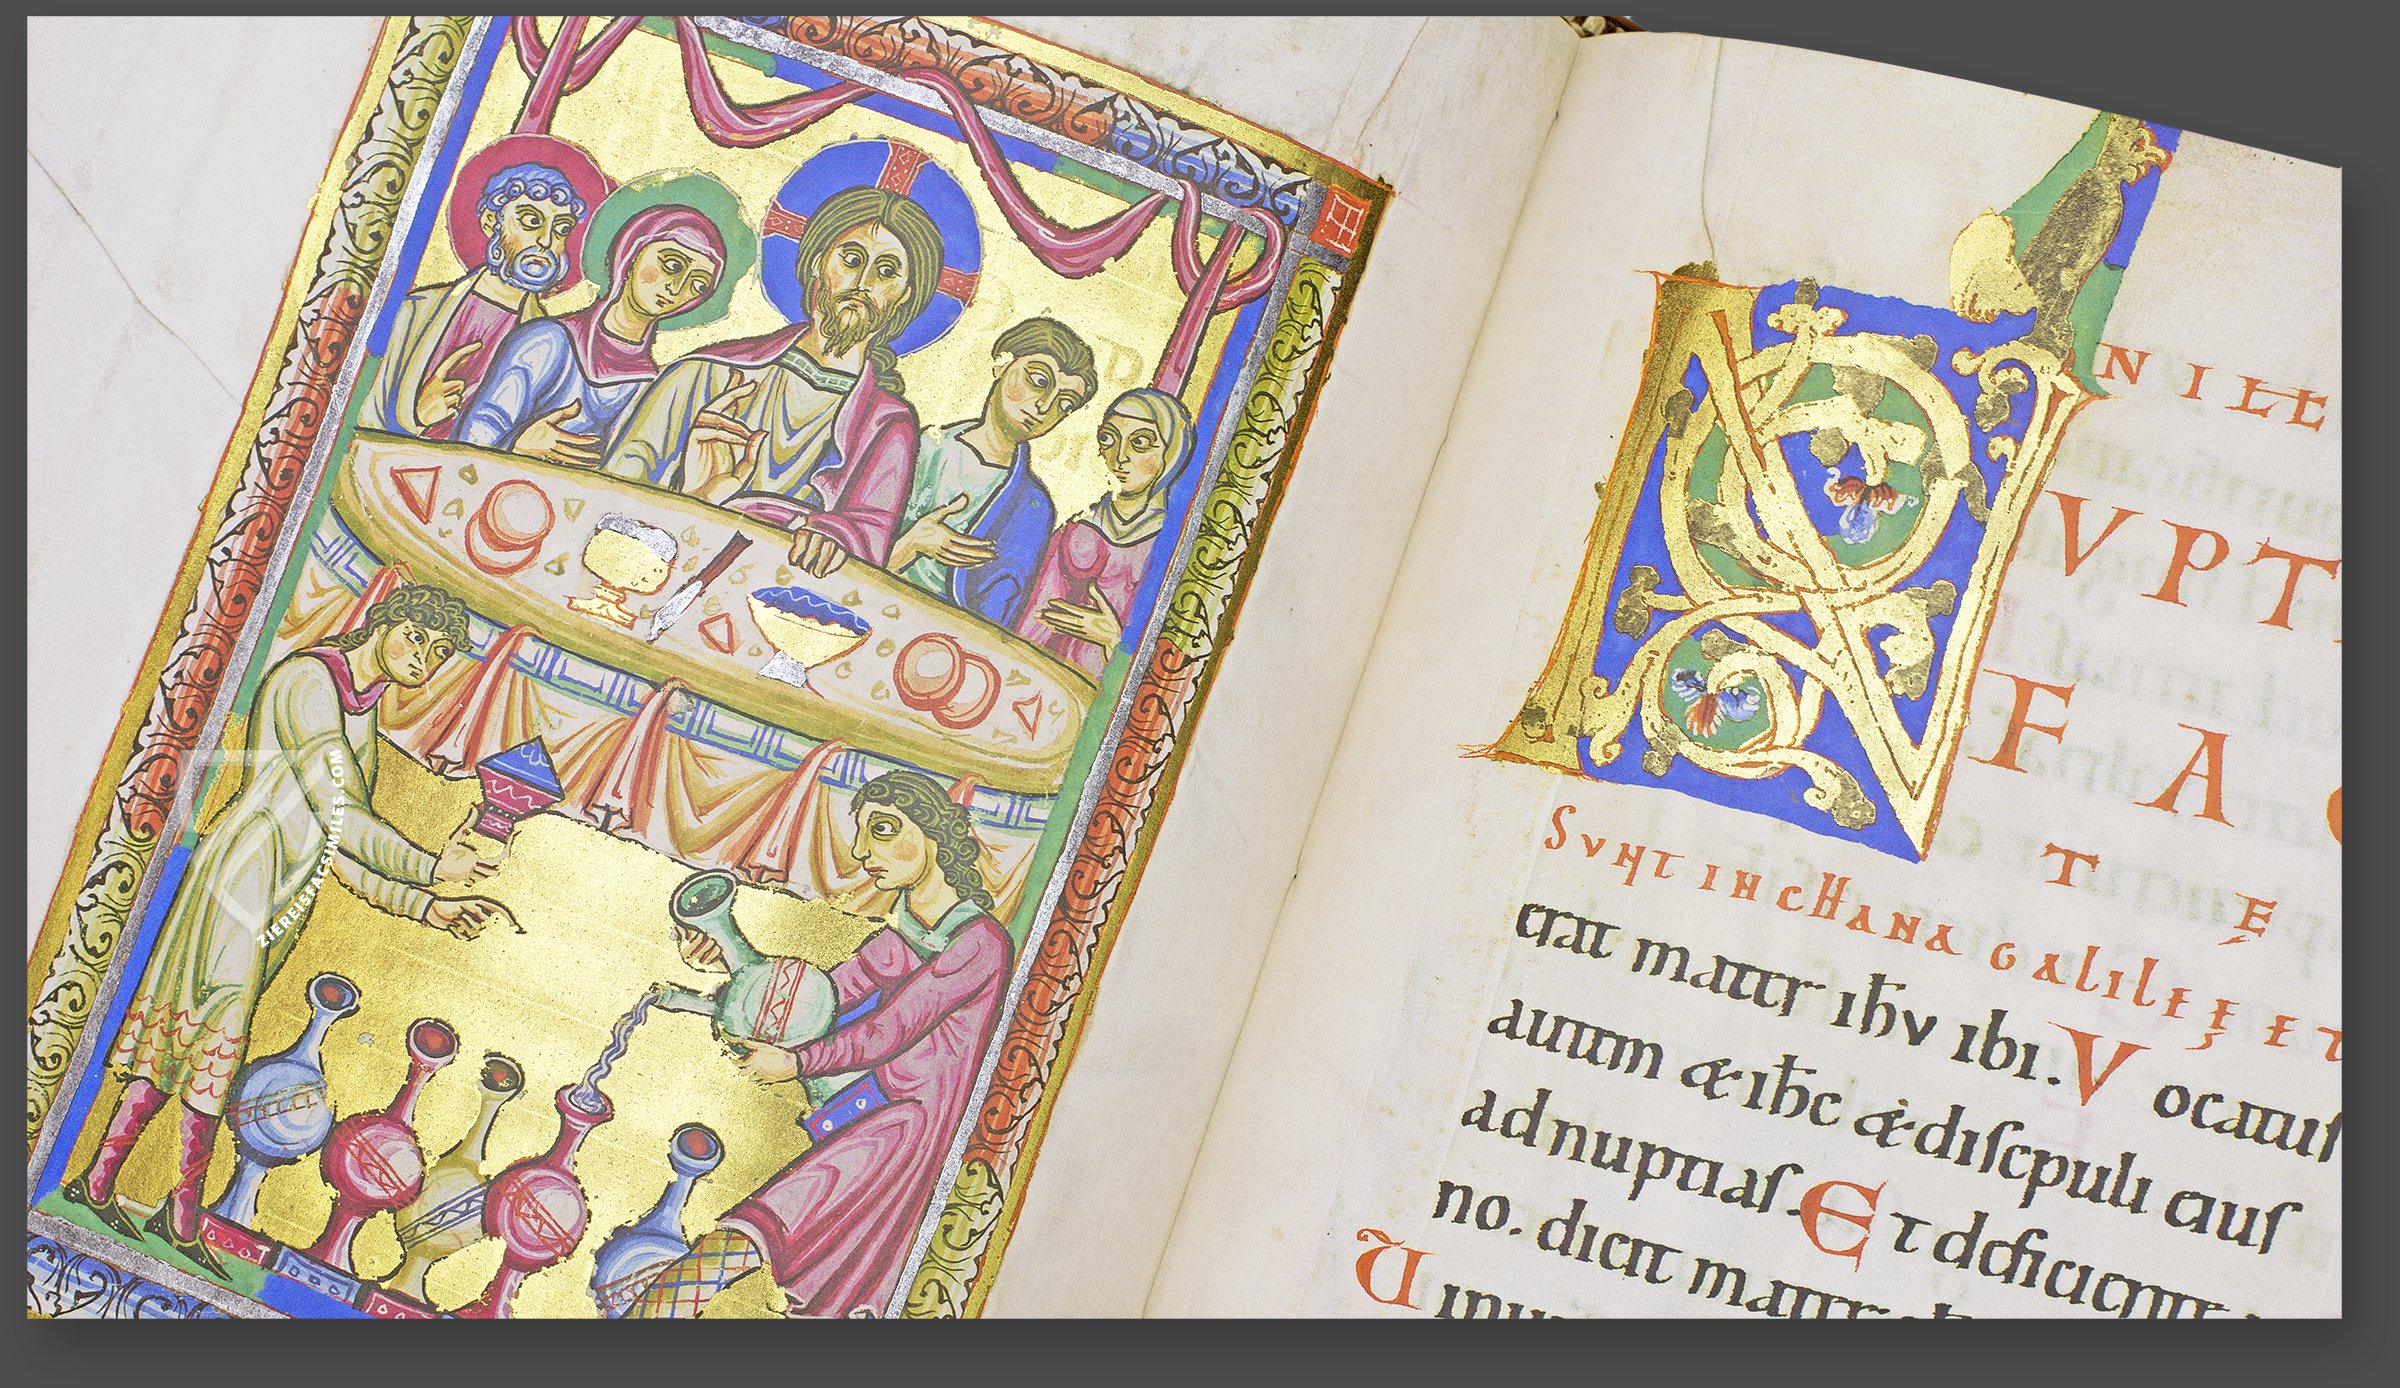 ZIEREISFACSIMILES.COM
N ILL
NVPT
FA
T Ę
SVNT IN CHANA GALILEĘ ET
erat mater ihv ibi. Vocatus
autem & ihc & discpuli eius
ad nuptias. Et deficiente
no. dicit mater
Uinu